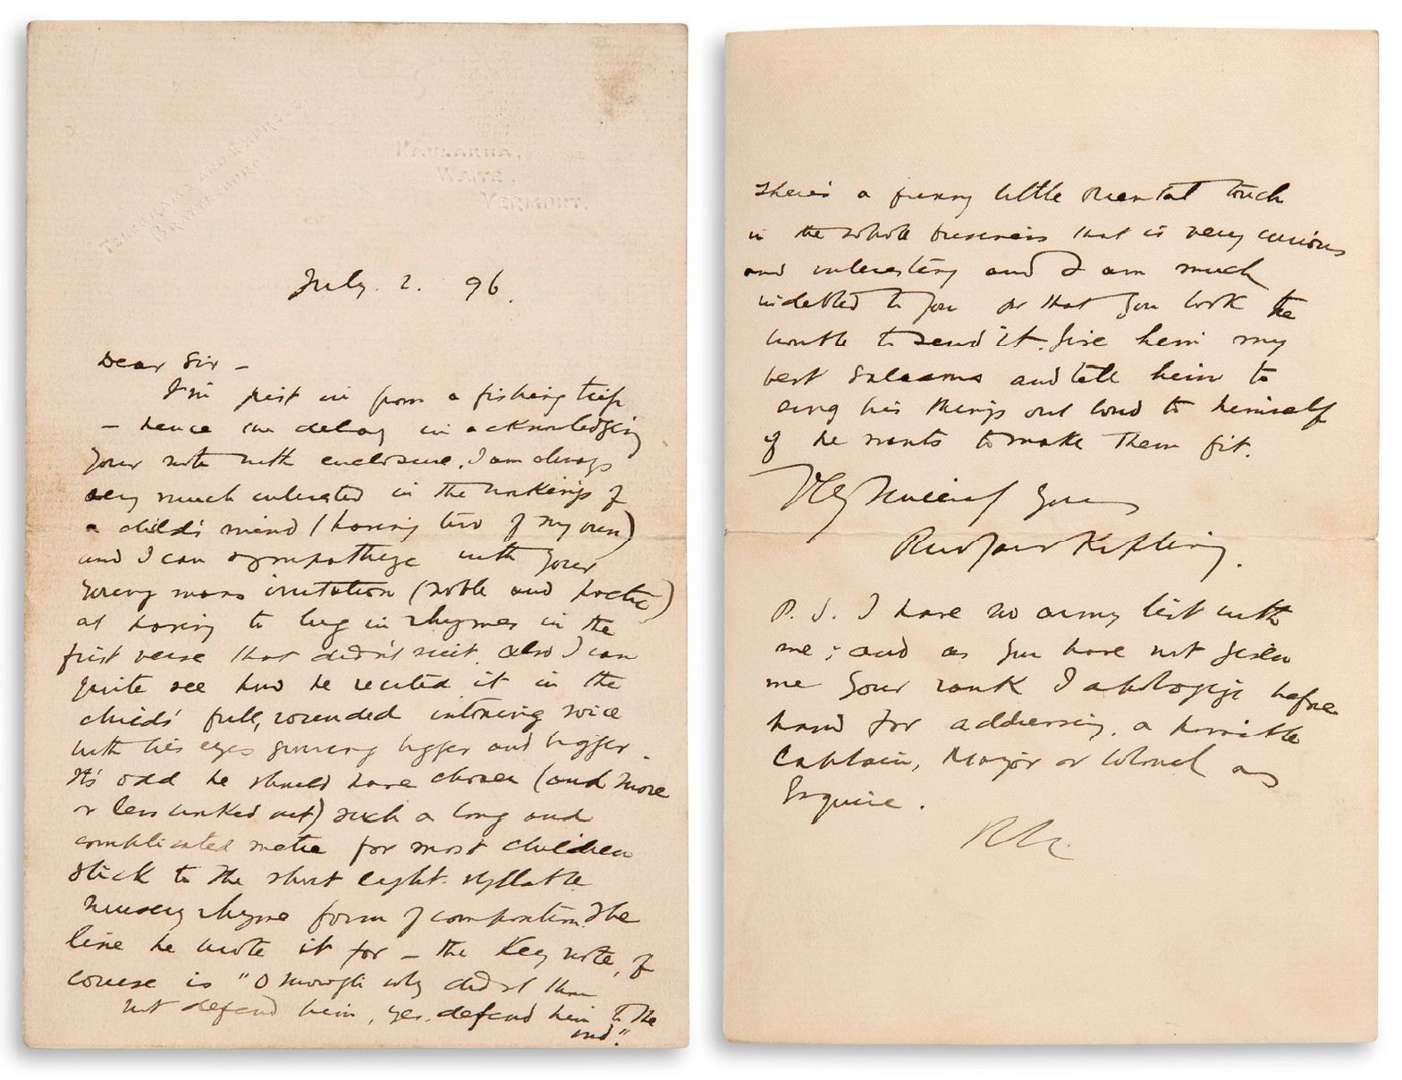 TELEGRAMS AND EXPRESS
BRATTLEBORO.
NAULAKHA,
WAITE,
VERMONT.
July. 2. 96.
Dear Sir –
I'm just in from a fishing trip
– hence the delay in acknowledging
your note with enclosure. I am always
very much interested in the workings of
a child's mind (having two of my own)
and I can sympathize with your
young mans irritation (noble and poetic)
at having to lug in rhymes in the
first verse that didn't suit. Also I can
quite see how he recited it in the
child's full, rounded intoning voice
with his eyes growing bigger and bigger.
It's odd he should have chosen (and more
or less worked out) such a long and
complicated metre for most children
stick to the short eight-syllable
nursery rhyme form of composition. The
line he wrote it for – the Key note, of
course is "O why didst thou
not defend him, yes, defend him to the
end."
There's a funny little Oriental touch
in the whole business that is very curious
and interesting and I am much
indebted to you for that you took the
trouble to send it. Give him my
best salaams and tell him to
sing his things out loud to himself
if he wants to make them fit.
Very sincerely yours
Rudyard Kipling.
P.S. I have no army list with
me; and as you have not given
me your rank I apologize before
hand for addressing a possible
Captain, Major or Colonel as
Esquire.
RK.